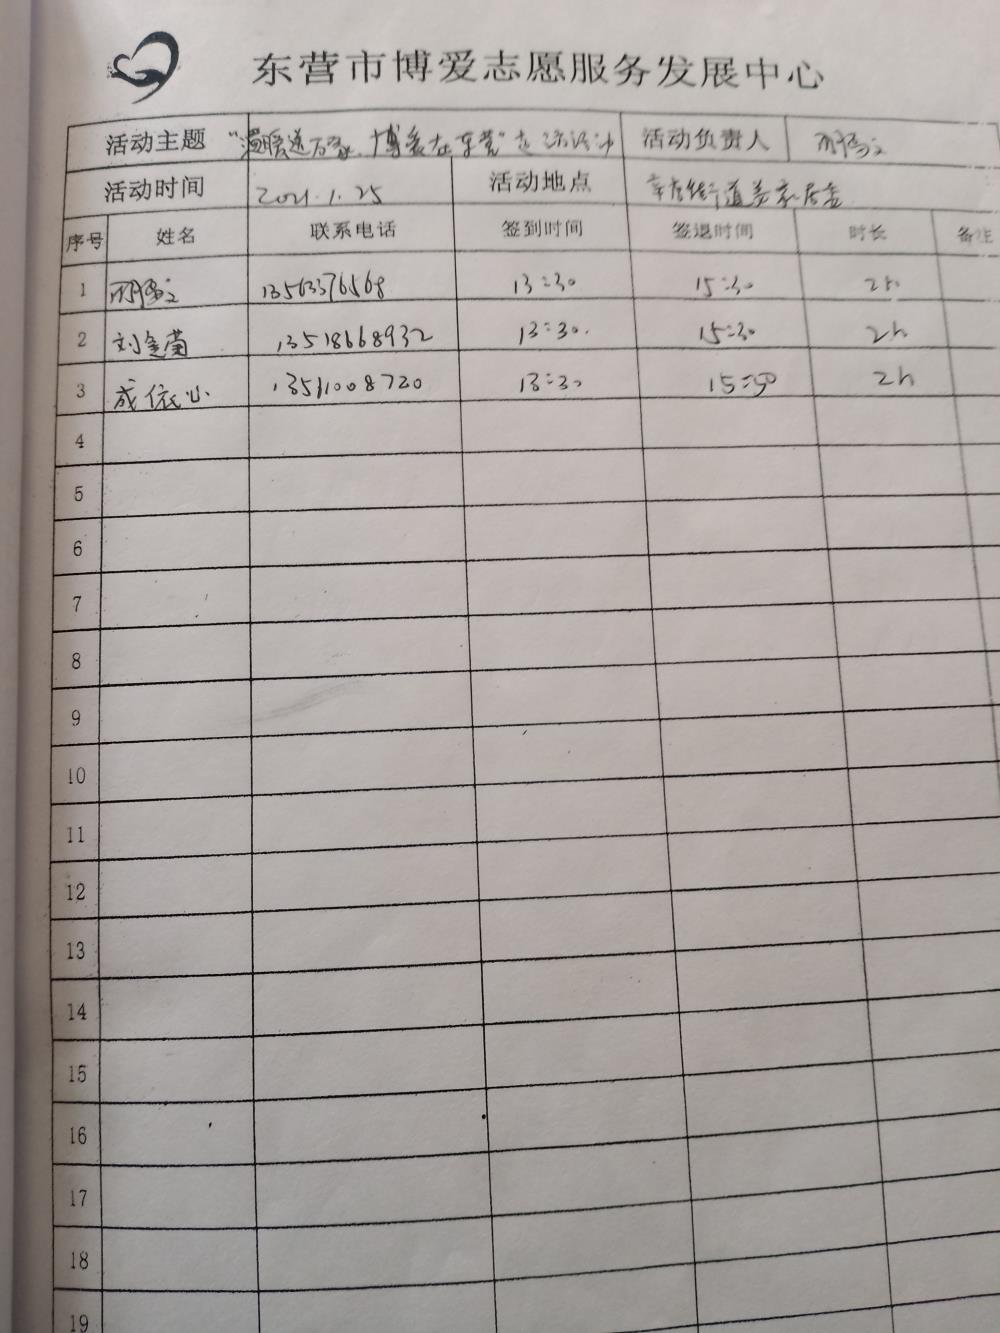 东营市博爱志愿服务发展中心
活动主题 "温暖送万家、博爱在东营" 活动负责人
活动时间 2021.1.25 活动地点 辛店街道 居委
序号 姓名 联系电话 签到时间 签退时间 时长 备注
1 13563376568 13:30 15:30 2h
2 刘金菊 13518668932 13:30. 15:30 2h
3 成依心 13511008720 13:30 15:30 2h
4
5
6
7
8
9
10
11
12
13
14
15
16
17
18
19